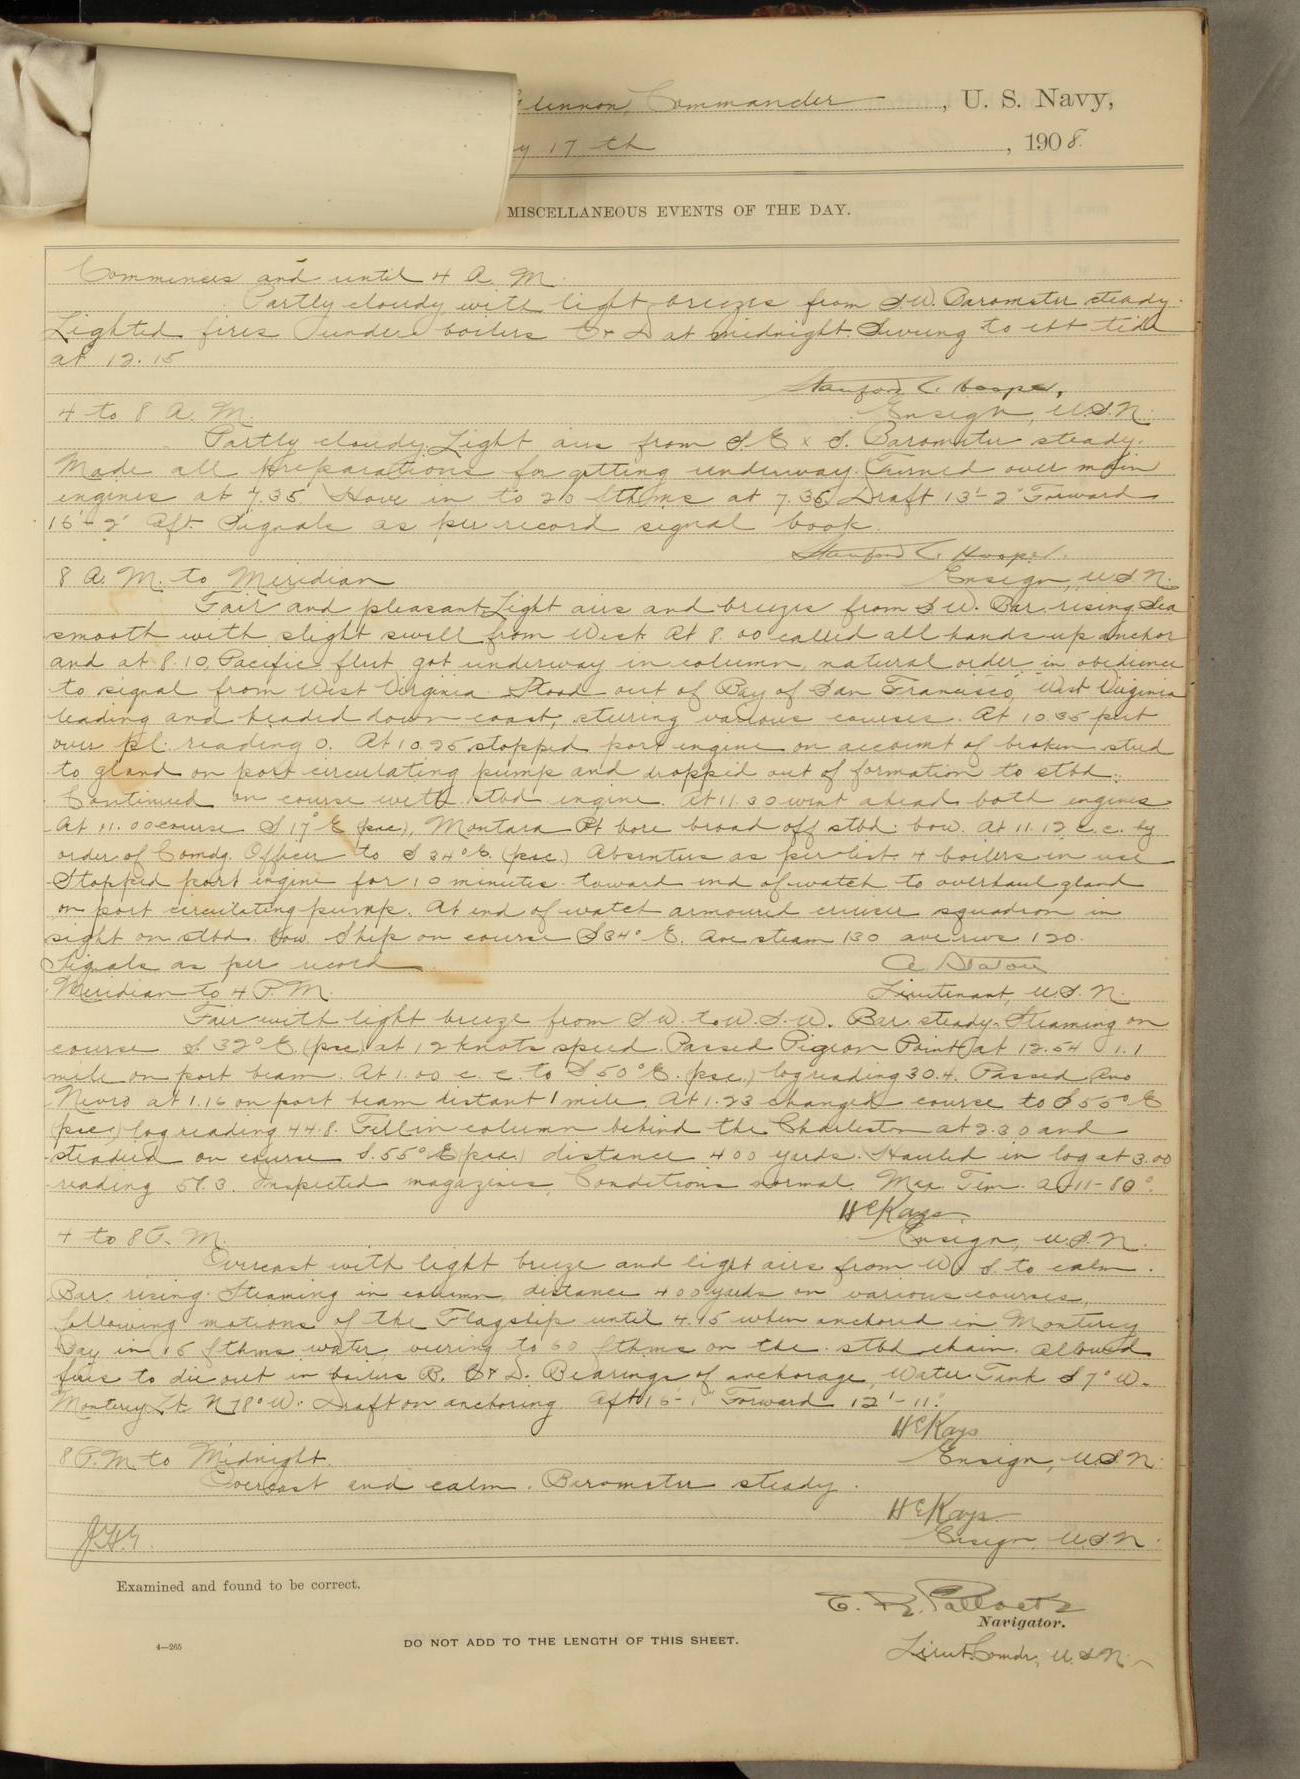 Glennon, Commander, U. S. Navy,
y 17th, 1908.
MISCELLANEOUS EVENTS OF THE DAY.
Commences and until 4 A. M.
Partly cloudy with light breezes from S.W. Barometer steady.
Lighted fires under boilers C & D at midnight. Swung to ebb tide
at 12.15
Stanford C. Hooper,
4 to 8 A. M.
Ensign, U.S.N.
Partly cloudy. Light airs from S. E x S. Barometer steady.
Made all preparations for getting underway. Turned over main
engines at 7.35 Hove in to 20 fthms at 7.35 Draft 13'-2" Forward
16'-2" Aft. Signals as per record signal book.
Stanford C. Hooper.
8 A. M. to Meridian
Ensign, U.S.N.
Fair and pleasant. Light airs and breezes from S W. Bar. rising Sea
smooth with slight swell from West. At 8.00 called all hands up anchor
and at 8.10 Pacific fleet got underway in column, natural order in obedience
to signal from West Virginia. Stood out of Bay of San Francisco, West Virginia
leading and headed down coast, steering various courses. At 10.35 put
over p.l. reading 0. At 10.25 stopped port engine on account of broken stud
to gland on port circulating pump and dropped out of formation to stbd.
Continued on course with stbd engine. At 11.30 went ahead both engines
At 11.00 course S 17° E (psc), Montara Pt bore broad off stbd. bow. At 11.12 c.c. by
order of Comdg. Officer to S 34° E. (psc.) Absentees as per list 4 boilers in use
Stopped port engine for 10 minutes toward end of watch to overhaul gland
on port circulating pump. At end of watch armoured cruiser squadron in
sight on stbd. bow. Ship on course S 34° E. Ave steam 130 ave revs 120.
Signals as per record
Meridian to 4 P.M.
Lieutenant, U.S.N.
Fair with light breeze from S W. to W.S.W. Bar. steady. Steaming on
course S. 32° E (psc) at 12 knots speed. Passed Pigeon Point at 12.54 1.1
mile on port beam. At 1.00 c. c. to S 50° E. (psc.) log reading 30.4. Passed Ano
Nevro at 1.16 on port beam distant 1 mile. At 1.23 changed course to S 55° E
(psc) log reading 44.8. Fell in column behind the Charleston at 2.30 and
steadied on course S. 55° E (psc.) distance 400 yards. Hauled in log at 3.00
reading 58.3. Inspected magazines, Conditions normal. Max. Tem. A 11-80°.
H E Kays
4 to 8 P. M.
Ensign, U.S.N.
Overcast with light breeze and light airs from W. S. to calm.
Bar. rising. Steaming in column, distance 400 yards on various courses,
following motions of the Flagship until 4.45 when anchored in Monterey
Bay in 15 fthms water, veering to 60 fthms on the stbd chain. Allowed
fires to die out in boilers B. C & D. Bearings of anchorage, Water Tank S 7° W.
Monterey Lt. N 78° W. Draft on anchoring Aft 16'-1" Forward 12'-11".
H E Kays
8 P.M. to Midnight
Ensign, U.S.N.
Overcast and calm. Barometer steady.
H E Kays
J.H.G.
Ensign, U.S.N.
Examined and found to be correct.
Navigator.
4—265
DO NOT ADD TO THE LENGTH OF THIS SHEET.
Lieut. Comdr, U.S.N.